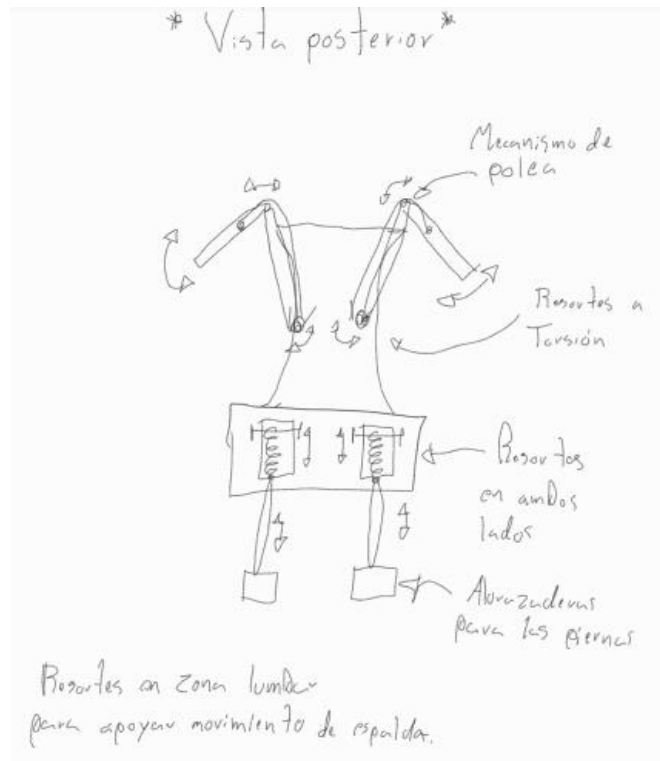 * Vista posterior *
Mecanismo de
polea
Resortes a
Torsión
Resortes
en ambos
lados
Abrazaderas
para las piernas
Resortes en zona lumbar
para apoyar movimiento de espalda.